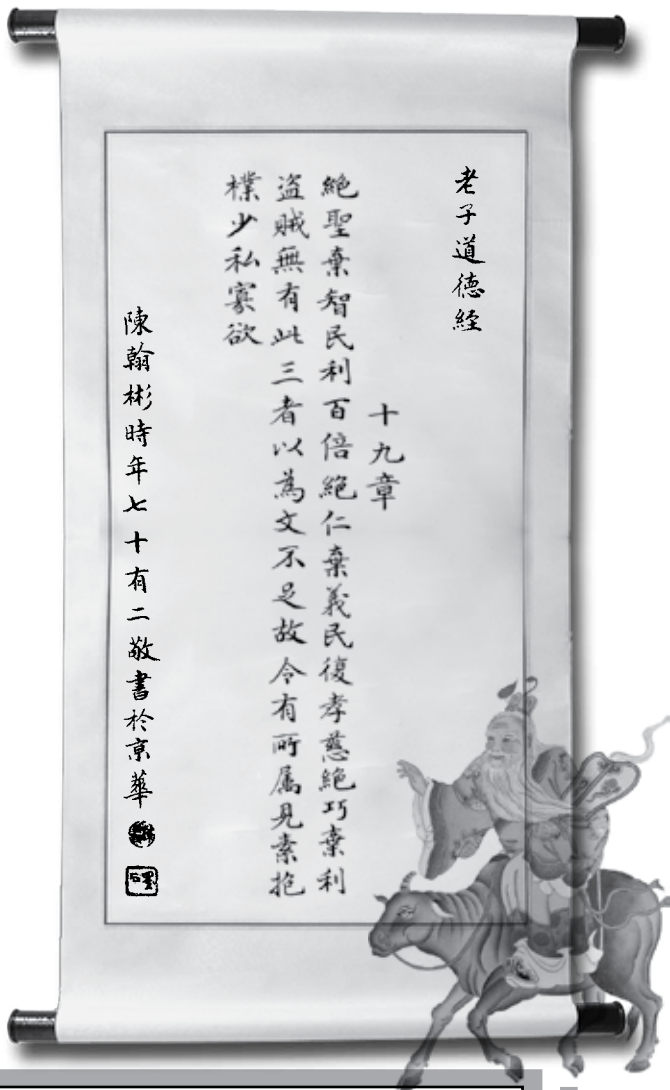 老子道德経
十九章
絕聖棄智民利百倍絕仁棄義民復孝慈絕巧棄利
盜賊無有此三者以為文不足故令有所属見素抱
樸少私寡欲
陳翰彬時年七十有二敬書於京華